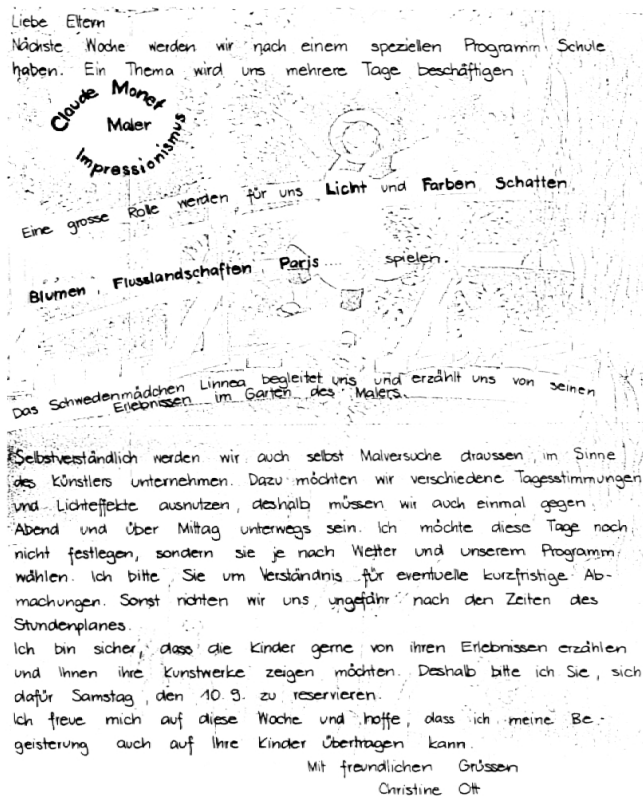 Liebe Eltern
Nächste Woche werden wir nach einem speziellen Programm Schule
haben. Ein Thema wird uns mehrere Tage beschäftigen
Claude Monet
Maler
Impressionismus
Eine grosse Rolle werden für uns Licht und Farben Schatten,
Blumen, Flusslandschaften, Paris spielen.
Das Schwedenmädchen Linnea begleitet uns und erzählt uns von seinen
Erlebnissen im Garten des Malers.
Selbstverständlich werden wir auch selbst Malversuche draussen, im Sinne
des Künstlers unternehmen. Dazu möchten wir verschiedene Tagesstimmungen
und Lichteffekte ausnutzen, deshalb müssen wir auch einmal gegen
Abend und über Mittag unterwegs sein. Ich möchte diese Tage noch
nicht festlegen, sondern sie je nach Wetter und unserem Programm
wählen. Ich bitte Sie um Verständnis für eventuelle kurzfristige Ab-
machungen. Sonst richten wir uns ungefähr nach den Zeiten des
Stundenplanes.
Ich bin sicher, dass die Kinder gerne von ihren Erlebnissen erzählen
und Ihnen ihre Kunstwerke zeigen möchten. Deshalb bitte ich Sie, sich
dafür Samstag, den 10.9. zu reservieren.
Ich freue mich auf diese Woche und hoffe, dass ich meine Be-
geisterung auch auf Ihre Kinder übertragen kann.
Mit freundlichen Grüssen
Christine Ott